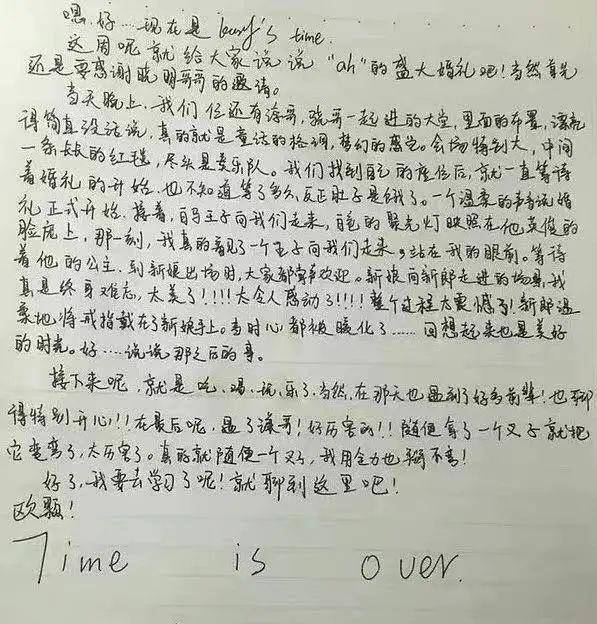 嗯,好……现在是 busy's time.
这周呢就给大家说说"ah"的盛大婚礼吧!当然首先
还是要感谢晓明哥哥的邀请。
当天晚上,我们位还有涂哥,骁哥一起进的大堂,里面的布置,漂亮
得简直没话说,真的就是童话的格调,梦幻的感觉。会场特别大,中间
一条长长的红毯,尽头是奏乐队。我们找到自己的座位后,就一直等待
着婚礼的开始,也不知道等了多久,反正肚子是饿了。一个温柔的声音说婚
礼正式开始.接着,白马王子向我们走来,白色的聚光灯映照在他英俊的
脸庞上,那一刻,我真的看见了一个王子向我们走来,站在我的眼前。等待
着他的公主.到新娘出场时,大家都掌声欢迎。新娘向新郎走进的场景,我
真是终身难忘,太美了!!!!太令人感动了!!!!整个过程太震憾了!新郎温
柔地将戒指戴在了新娘手上。当时心都被暖化了……回想起来也是美好
的时光。好……说说那之后的事。
接下来呢,就是吃、喝、玩、乐了.当然,在那天也遇到了好多前辈!也聊
得特别开心!!!在最后呢,遇了涂哥!好厉害的!!随便拿了一个叉子就把
它变弯了,太厉害了。真的就随便一个叉子,我用全力也掰不弯!
好了,我要去学习了呢!就聊到这里吧!
欧颗!
Time is over.